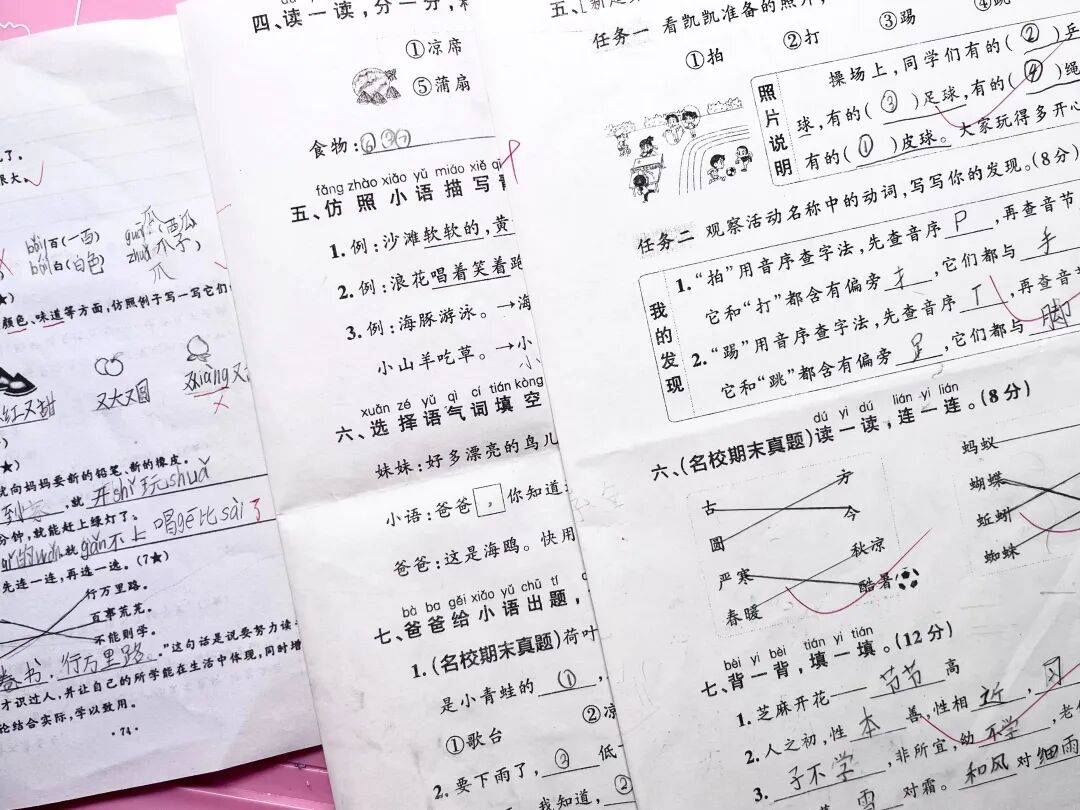 很大。
bǎi百(一百)
bái白(白色)
guā瓜(西瓜)
zhuǎ爪(爪子)
颜色、味道等方面,仿照例子写一写它们
红又甜
又大又圆
又xiāng又
向妈妈要新的铅笔、新的橡皮。
就开shǐ玩shuǎ
分钟,就能赶上绿灯了。
就gǎn不上
唱gē比sài了
先连一连,再选一选。(7★)
行万里路。
百事荒芜。
不能则学。
卷书,行万里路。”这句话是说要努力读
才识过人,并让自己的所学能在生活中体现,同时增
论结合实际,学以致用。
·74·
四、读一读,分一分,
①凉席
⑤蒲扇
食物:⑥③⑦
fǎng zhào xiǎo yǔ miáo xiě
五、仿照小语描写
1.例:沙滩软软的,黄
2.例:浪花唱着笑着跑
3.例:海豚游泳。→海
小山羊吃草。→小
xuǎn zé yǔ qì cí tián kòng
六、选择语气词填空
妹妹:好多漂亮的鸟儿
小语:爸爸,你知道
爸爸:这是海鸥。快用
bà ba gěi xiǎo yǔ chū tí
七、爸爸给小语出题,
1.(名校期末真题)荷叶
是小青蛙的①,
①歌台
②凉
2.要下雨了,③低
我知道,②
五、
任务一 看凯凯准备的照片,
①拍
②打
③踢
④跳
照片说明
操场上,同学们有的(②)乒
球,有的(③)足球,有的(④)绳
有的(①)皮球。大家玩得多开心
任务二 观察活动名称中的动词,写写你的发现。(8分)
我的发现
1.“拍”用音序查字法,先查音序P,再查音节
它和“打”都含有偏旁扌,它们都与手
2.“踢”用音序查字法,先查音序T,再查音节
它和“跳”都含有偏旁⻊,它们都与脚
dú yi dú lián yi lián
六、(名校期末真题)读一读,连一连。(8分)
古
圆
严寒
春暖
方
今
秋凉
酷暑
蚂蚁
蝴蝶
蚯蚓
蜘蛛
bèi yi bèi tián yi tián
七、背一背,填一填。(12分)
1.芝麻开花——节节高
2.人之初,性本善,性相近,
3.子不学,非所宜,幼不学,老
雨对霜。和风对细雨